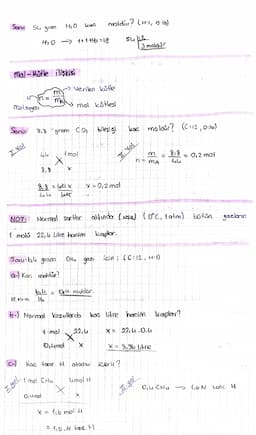 Soru: 54 gram H2O kaç moldür? (H:1, O:16)
H2O → 1+1+16=18 54/18 3 moldür
Mol - Kütle İlişkisi
n = m/MA → verilen kütle
mol sayısı → mol kütlesi
Soru: 8,8 gram CO2 bileşiği kaç moldür? (C:12, O:16)
I. yol
44 1 mol
8,8 x
8,8/44 = 44x/44 x = 0,2 mol
II. yol
n = m/MA = 8,8/44 = 0,2 mol
NOT: Normal şartlar altında (NŞA) (0°C, 1 atm) bütün gazların
1 molü 22,4 litre hacim kaplar.
Soru: 6,4 gram CH4 gazı için; (C:12, H:1)
a-) Kaç moldür?
6,4/16 = 0,4 moldür.
b-) Normal koşullarda kaç litre hacim kaplar?
1 mol 22,4 x = 22,4.0,4
0,4 mol x x = 8,96 litre
c-) Kaç tane H atomu içerir?
I. yol 1 mol CH4 4 mol H
0,4 mol x
x = 1,6 mol H
= 1,6.N tane H
II. yol
0,4 CH4 → 1,6 N tane H